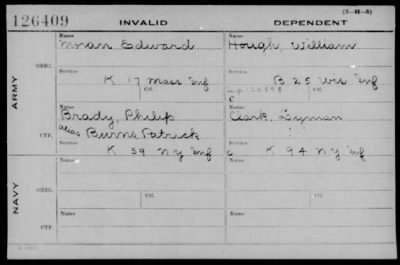 (3-H-5)
126409 INVALID DEPENDENT
Name Name
Edward Hough, William
ORIG. Service Service
K 17 Mass Inf B 25 Wis Inf
Ctf. Ctf.
C
ARMY
Name Name
Brady, Philip Clark, Lyman
alias Burns, Patrick
CTF. Service
K 59 NY Inf K 94 NY Inf
Name Name
ORIG.
NAVY
Ctf. Ctf.
Name Name
CTF.